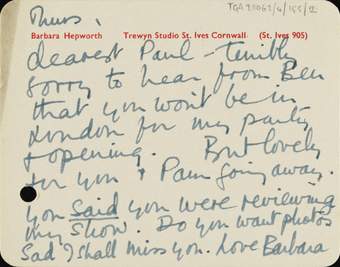 Thurs.
TGA 9806/4/155/2
Barbara Hepworth Trewyn Studio St. Ives Cornwall (St. Ives 905)
dearest Paul – terribly
sorry to hear from Ben
that you won't be in
London for my party
& opening. But lovely
for you & Pam going away.
you said you were reviewing
my show. Do you want photos
Sad I shall miss you. Love Barbara